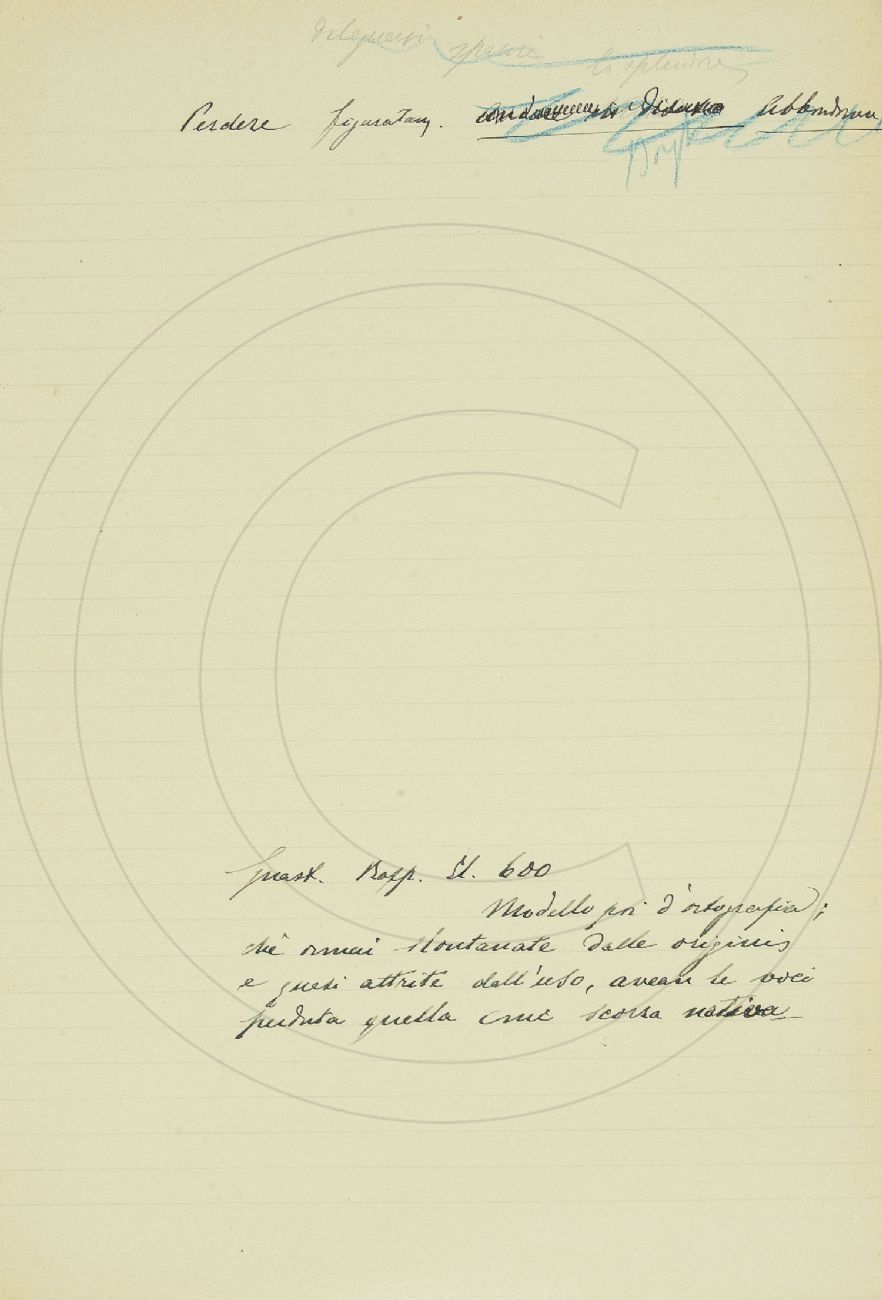 dileguarsi sparire lo splendore
Perdere figuratam. andare in disuso Abbandonare
Guast. Rapp. St. 600
Modello poi d'ortografia;
chè omai slontanate dalle origini
e quasi attrite dall'uso, avean le voci
perduta quella come scorsa nativa